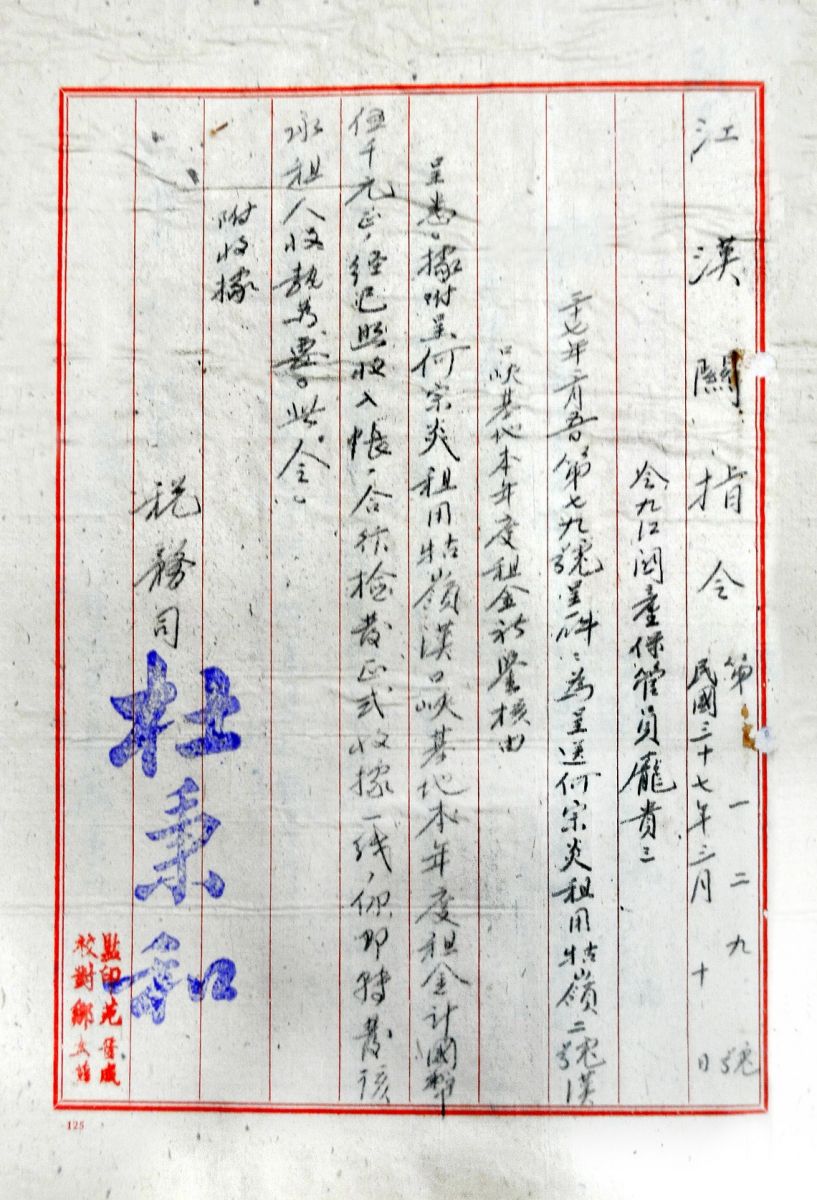 江漢關指令 第一二九號
民國三十七年三月十日
令九江關產保管員龐貴三
三十七年二月 日第七九號呈一件：為呈送何宗炎租用牯嶺二號漢
口峽基地本年度租金祈鑒核由
呈悉。據附呈何宗炎租用牯嶺漢口峽基地本年度租金計國幣
伍千元正，經已照收入帳，合行檢發正式收據一紙，仰即轉發該
承租人收執為要。此令。
附收據
稅務司 杜秉和
監印 范晉威
校對 鄭
125